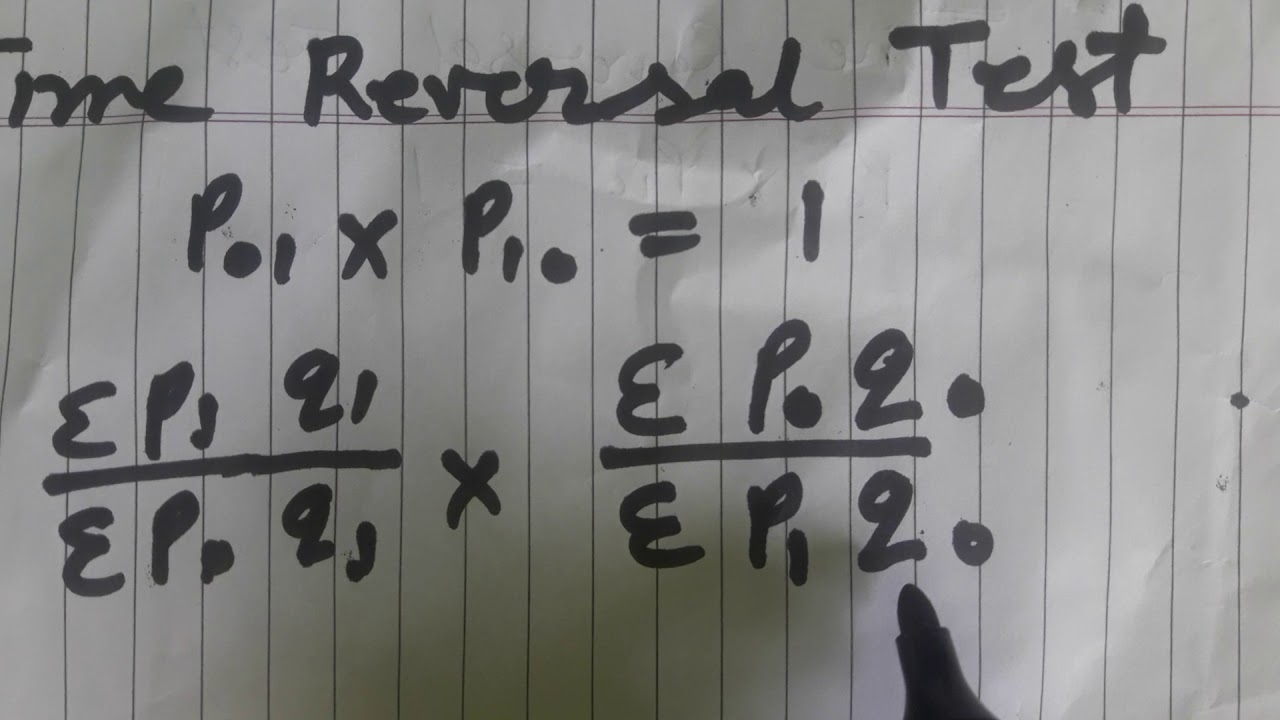 Time Reversal Test
P₀₁ × P₁₀ = 1
Σ P₁ q₁ / Σ P₀ q₁ × Σ P₀ q₀ / Σ P₁ q₀